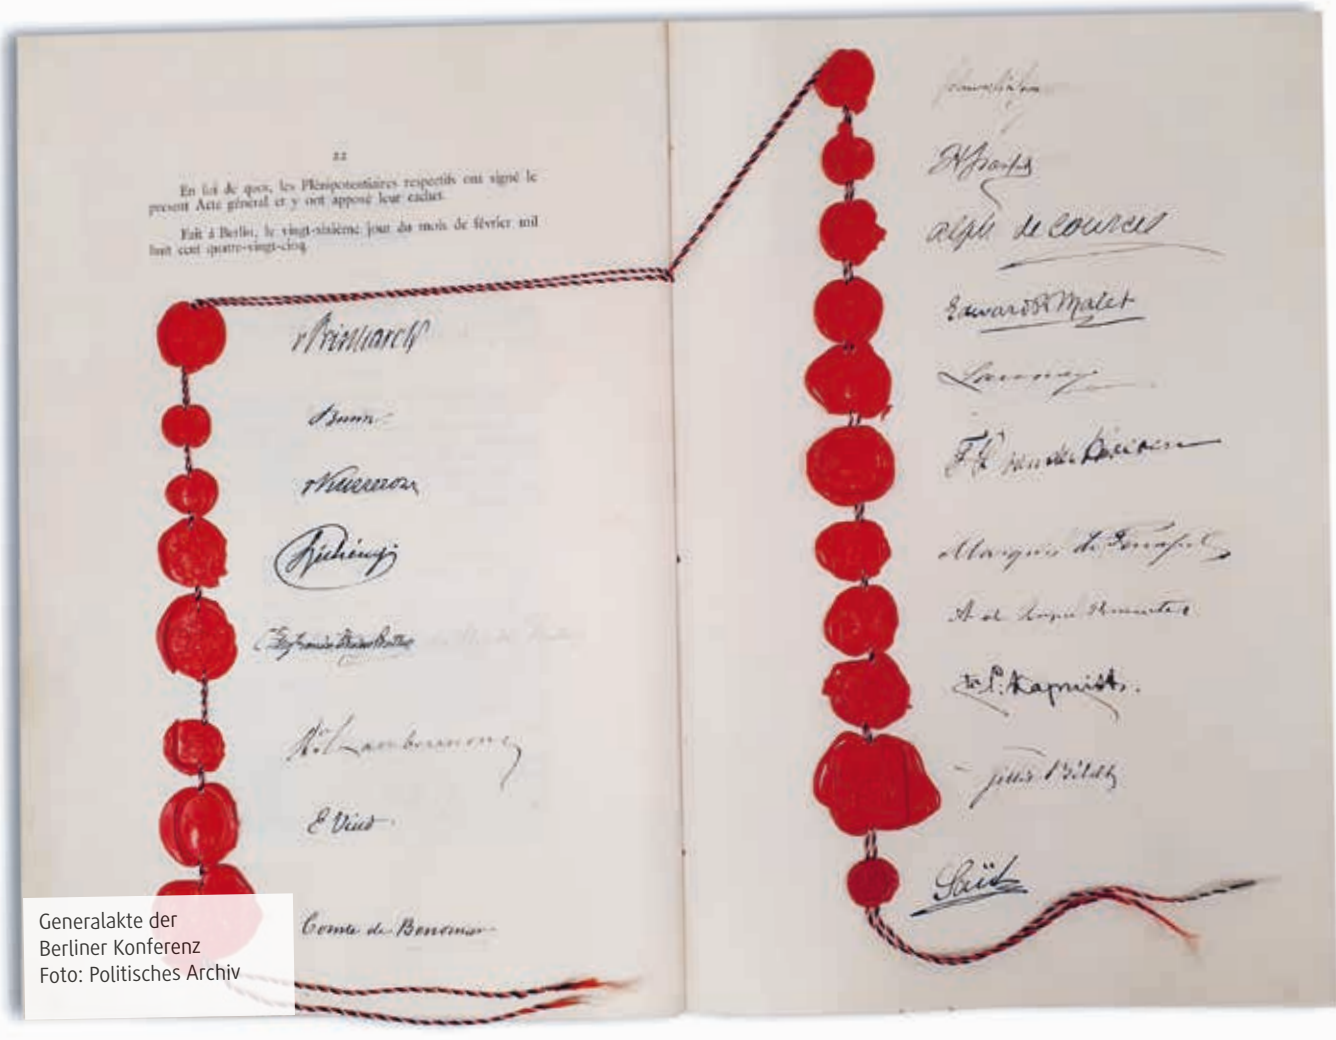 22
En foi de quoi, les Plénipotentiaires respectifs ont signé le
présent Acte général et y ont apposé leur cachet.
Fait à Berlin, le vingt-sixième jour du mois de février mil
huit cent quatre-vingt-cinq.
v Bismarck
Busch
v Kusserow
Széchényi
E Vind.
Comte de Benomar
Alph de Courcel
Edward B Malet
Launay
F P van der Hoeven
Marquis de Penafiel
A de Serpa Pimentel
Cte P. Kapnist.
Gillis Bildt
Saïd
Generalakte der
Berliner Konferenz
Foto: Politisches Archiv